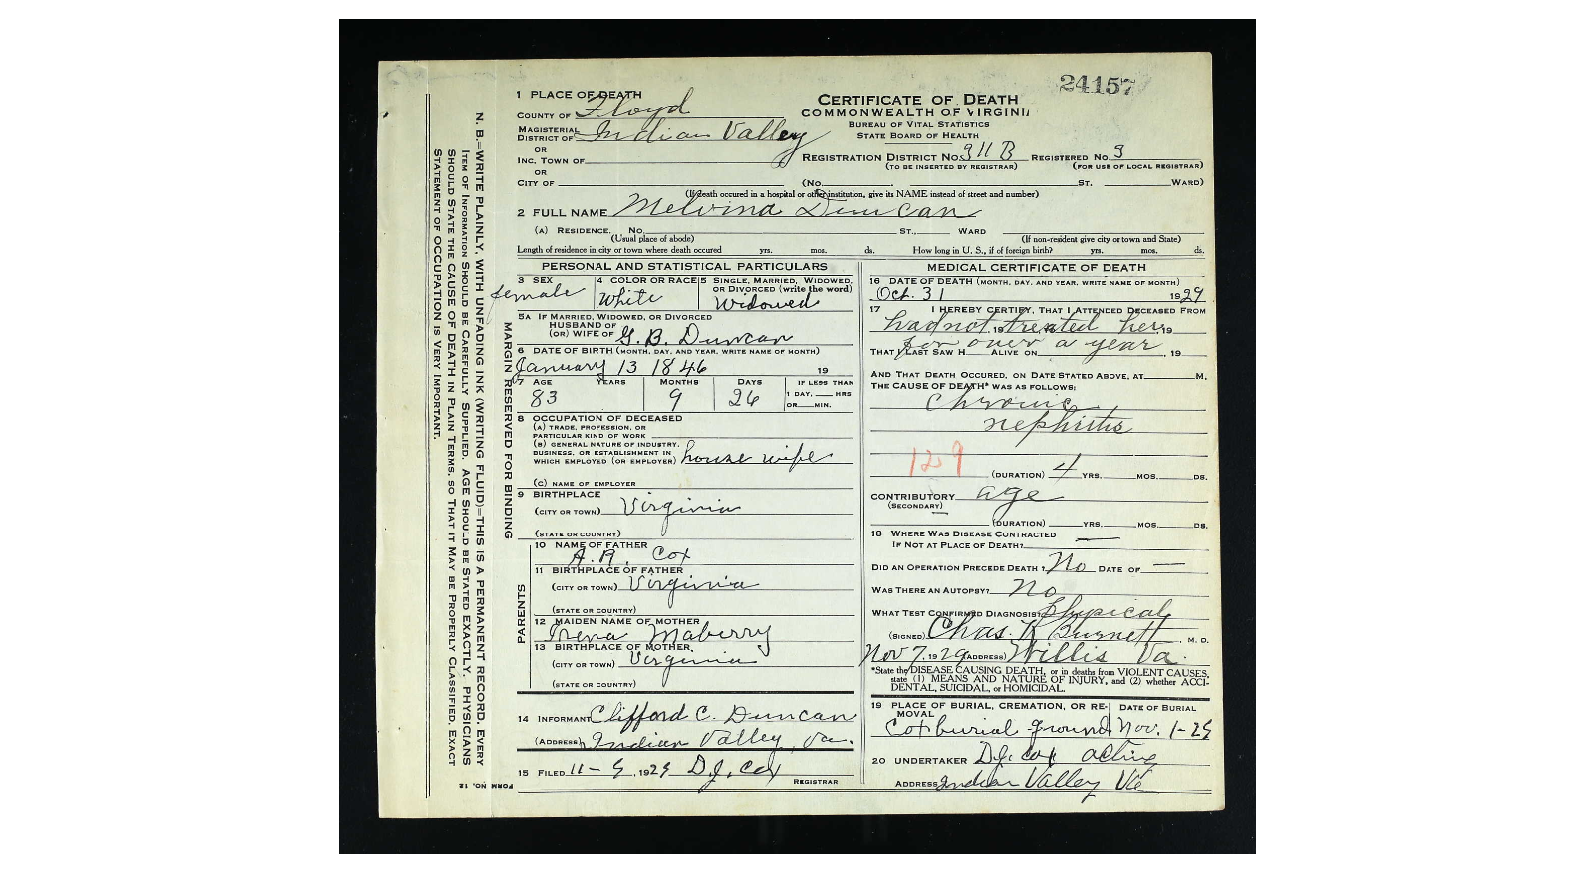 24157
1 PLACE OF DEATH
COUNTY OF Floyd
CERTIFICATE OF DEATH
COMMONWEALTH OF VIRGINIA
BUREAU OF VITAL STATISTICS
STATE BOARD OF HEALTH
MAGISTERIAL
DISTRICT OF Indian Valley
OR
INC. TOWN OF
REGISTRATION DISTRICT NO. 311 B REGISTERED NO. 9
(TO BE INSERTED BY REGISTRAR) (FOR USE OF LOCAL REGISTRAR)
OR
CITY OF (No. ST., WARD)
(If death occured in a hospital or other instituton, give its NAME instead of street and number)
2 FULL NAME Melvina Duncan
(A) RESIDENCE. No. ST., WARD
(Usual place of abode) (If non-resident give city or town and State)
Length of residence in city or town where death occured yrs. mos. ds. How long in U. S., if of foreign birth? yrs. mos. ds.
PERSONAL AND STATISTICAL PARTICULARS
3 SEX 4 COLOR OR RACE 5 SINGLE, MARRIED, WIDOWED,
OR DIVORCED (write the word)
female White Widowed
5A IF MARRIED, WIDOWED, OR DIVORCED
HUSBAND OF
(OR) WIFE OF G. B. Duncan
6 DATE OF BIRTH (MONTH, DAY, AND YEAR, WRITE NAME OF MONTH)
January 13 1846 19
7 AGE YEARS MONTHS DAYS IF LESS THAN
1 DAY, HRS
OR MIN.
83 9 26
8 OCCUPATION OF DECEASED
(A) TRADE, PROFESSION, OR
PARTICULAR KIND OF WORK
(B) GENERAL NATURE OF INDUSTRY,
BUSINESS, OR ESTABLISHMENT IN
WHICH EMPLOYED (OR EMPLOYER) house wife
(C) NAME OF EMPLOYER
9 BIRTHPLACE
(CITY OR TOWN) Virginia
(STATE OR COUNTRY)
PARENTS
10 NAME OF FATHER
A. R. Cox
11 BIRTHPLACE OF FATHER
(CITY OR TOWN) Virginia
(STATE OR COUNTRY)
12 MAIDEN NAME OF MOTHER
Irena Maberry
13 BIRTHPLACE OF MOTHER
(CITY OR TOWN) Virginia
(STATE OR COUNTRY)
14 INFORMANT Clifford C. Duncan
(ADDRESS) Indian Valley, Va.
15 FILED 11-9, 1929 D.J. Cox
REGISTRAR
MEDICAL CERTIFICATE OF DEATH
16 DATE OF DEATH (MONTH, DAY, AND YEAR, WRITE NAME OF MONTH)
Oct. 31 1929
17 I HEREBY CERTIFY, THAT I ATTENDED DECEASED FROM
had not, 19 treated her, 19
for over a year
THAT I LAST SAW H ALIVE ON , 19
AND THAT DEATH OCCURED, ON DATE STATED ABOVE, AT M.
THE CAUSE OF DEATH* WAS AS FOLLOWS:
Chronic
nephritis
129
(DURATION) 4 YRS. MOS. DS.
CONTRIBUTORY age
(SECONDARY)
(DURATION) YRS. MOS. DS.
18 WHERE WAS DISEASE CONTRACTED
IF NOT AT PLACE OF DEATH?
DID AN OPERATION PRECEDE DEATH? No DATE OF —
WAS THERE AN AUTOPSY? No
WHAT TEST CONFIRMED DIAGNOSIS? Physical
(SIGNED) Chas. K Burnett, M. D.
Nov 7, 1929 (ADDRESS) Willis Va.
*State the DISEASE CAUSING DEATH, or in deaths from VIOLENT CAUSES,
state (1) MEANS AND NATURE OF INJURY, and (2) whether ACCI-
DENTAL, SUICIDAL, or HOMICIDAL.
19 PLACE OF BURIAL, CREMATION, OR RE-
MOVAL DATE OF BURIAL
Cox burial ground Nov. 1-29
20 UNDERTAKER D.J. Cox acting
ADDRESS Indian Valley Va
MARGIN RESERVED FOR BINDING
N. B.—WRITE PLAINLY, WITH UNFADING INK (WRITING FLUID)—THIS IS A PERMANENT RECORD. EVERY
ITEM OF INFORMATION SHOULD BE CAREFULLY SUPPLIED. AGE SHOULD BE STATED EXACTLY. PHYSICIANS
SHOULD STATE THE CAUSE OF DEATH IN PLAIN TERMS, SO THAT IT MAY BE PROPERLY CLASSIFIED. EXACT
STATEMENT OF OCCUPATION IS VERY IMPORTANT.
FORM NO. 12